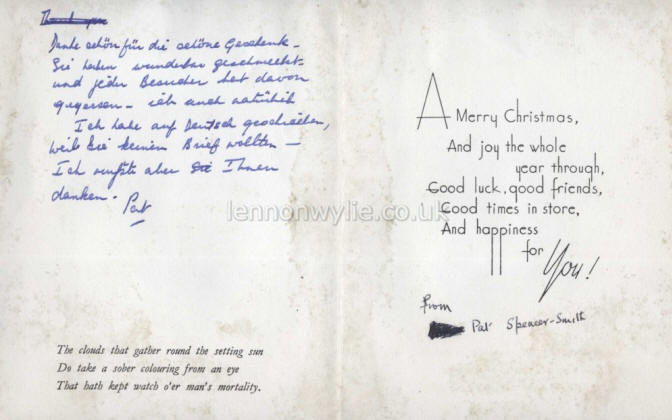 Thank you
Danke schön für die schöne Geschenk -
Sie haben wunderbar geschmeckt -
und jeder Besucher hat davon
gegessen - ich auch natürlich
Ich habe auf Deutsch geschrieben,
weil Sie keinen Brief wollten -
Ich mußte aber Sie Ihnen
danken. Pat
The clouds that gather round the setting sun
Do take a sober colouring from an eye
That hath kept watch o'er man's mortality.
A Merry Christmas,
And joy the whole
year through,
Good luck, good friends,
Good times in store,
And happiness
for You!
From
Pat Spencer-Smith
lennonwylie.co.uk